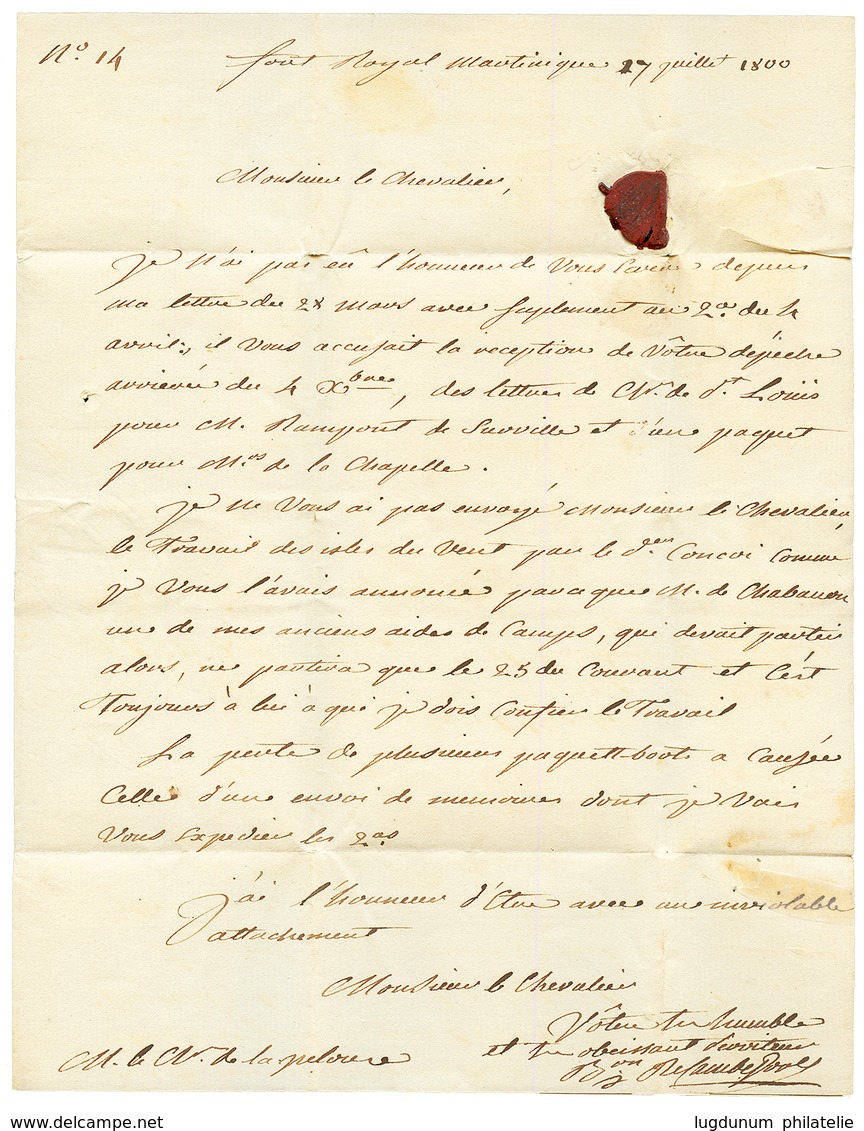 N.o 14
fort Royal Martinique 27 juillet 1800
Monsieur le Chevalier,
je n'ai pas eû l'honneur de vous Ecrire depuis
ma lettre du 28 mars avec suplement au 2.a du 4
avril; il vous accusait la reception de vôtre depeche
arrierée du 4 Xbre, des lettres de Ch.r de St Louïs
pour M. Rampont de Surville et d'une paquet
pour M.rs de la Chapelle.
je ne vous ai pas envoyé Monsieur le Chevalier
le Travail des isles du Vent par le d.er Convoi comme
je vous l'avais annoncé parceque M. de Chabanon
une de mes anciens aides de Camps, qui devait partir
alors, ne partira que le 25 du Courant et C'est
Toujours à lui à qui je dois Confier le Travail
La perte de plusieurs paquett-boots a Causée
Celle d'une envoi de memoires dont je vais
vous Expedier les 2.as
j'ai l'honneur d'Etre avec une inviolable
attachement
Monsieur le Chevalier
Vôtre tr humble
et tr obeissant Serviteur
B.on
M. le Ch.r de la pelouze
www.delcampe.net
lugdunum philatelie